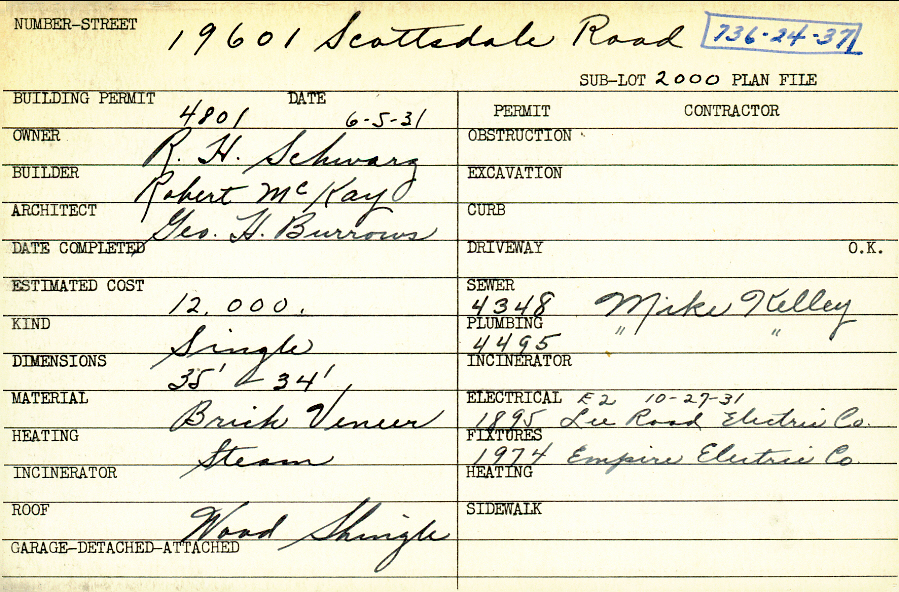 NUMBER-STREET 19601 Scottsdale Road 736-24-37
SUB-LOT 2000 PLAN FILE
BUILDING PERMIT 4801 DATE 6-5-31
PERMIT CONTRACTOR
OWNER R. H. Schwarz
OBSTRUCTION
BUILDER Robert McKay
EXCAVATION
ARCHITECT Geo. H. Burrows
CURB
DATE COMPLETED
DRIVEWAY O.K.
ESTIMATED COST 12,000.
SEWER 4348 Mike Kelley
KIND Single
PLUMBING 4495 " "
DIMENSIONS 35' - 34'
INCINERATOR
MATERIAL Brick Veneer
ELECTRICAL E2 10-27-31
1895 Lee Road Electric Co.
HEATING Steam
FIXTURES 1974 Empire Electric Co
INCINERATOR
HEATING
ROOF Wood Shingle
SIDEWALK
GARAGE-DETACHED-ATTACHED